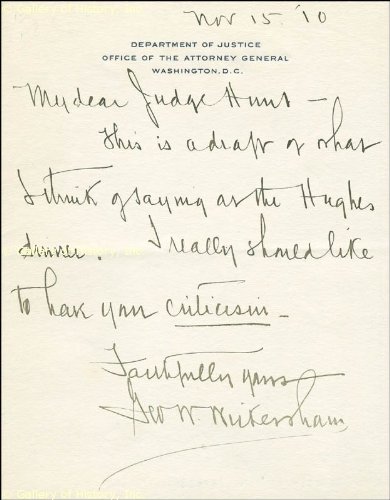 Nov 15. '10
DEPARTMENT OF JUSTICE
OFFICE OF THE ATTORNEY GENERAL
WASHINGTON, D.C.
My dear Judge Hunt -
This is a draft of what
I think of saying at the Hughes
dinner. I really should like
to have your criticism -
Faithfully yours
Geo W Wickersham
Gallery of History, Inc